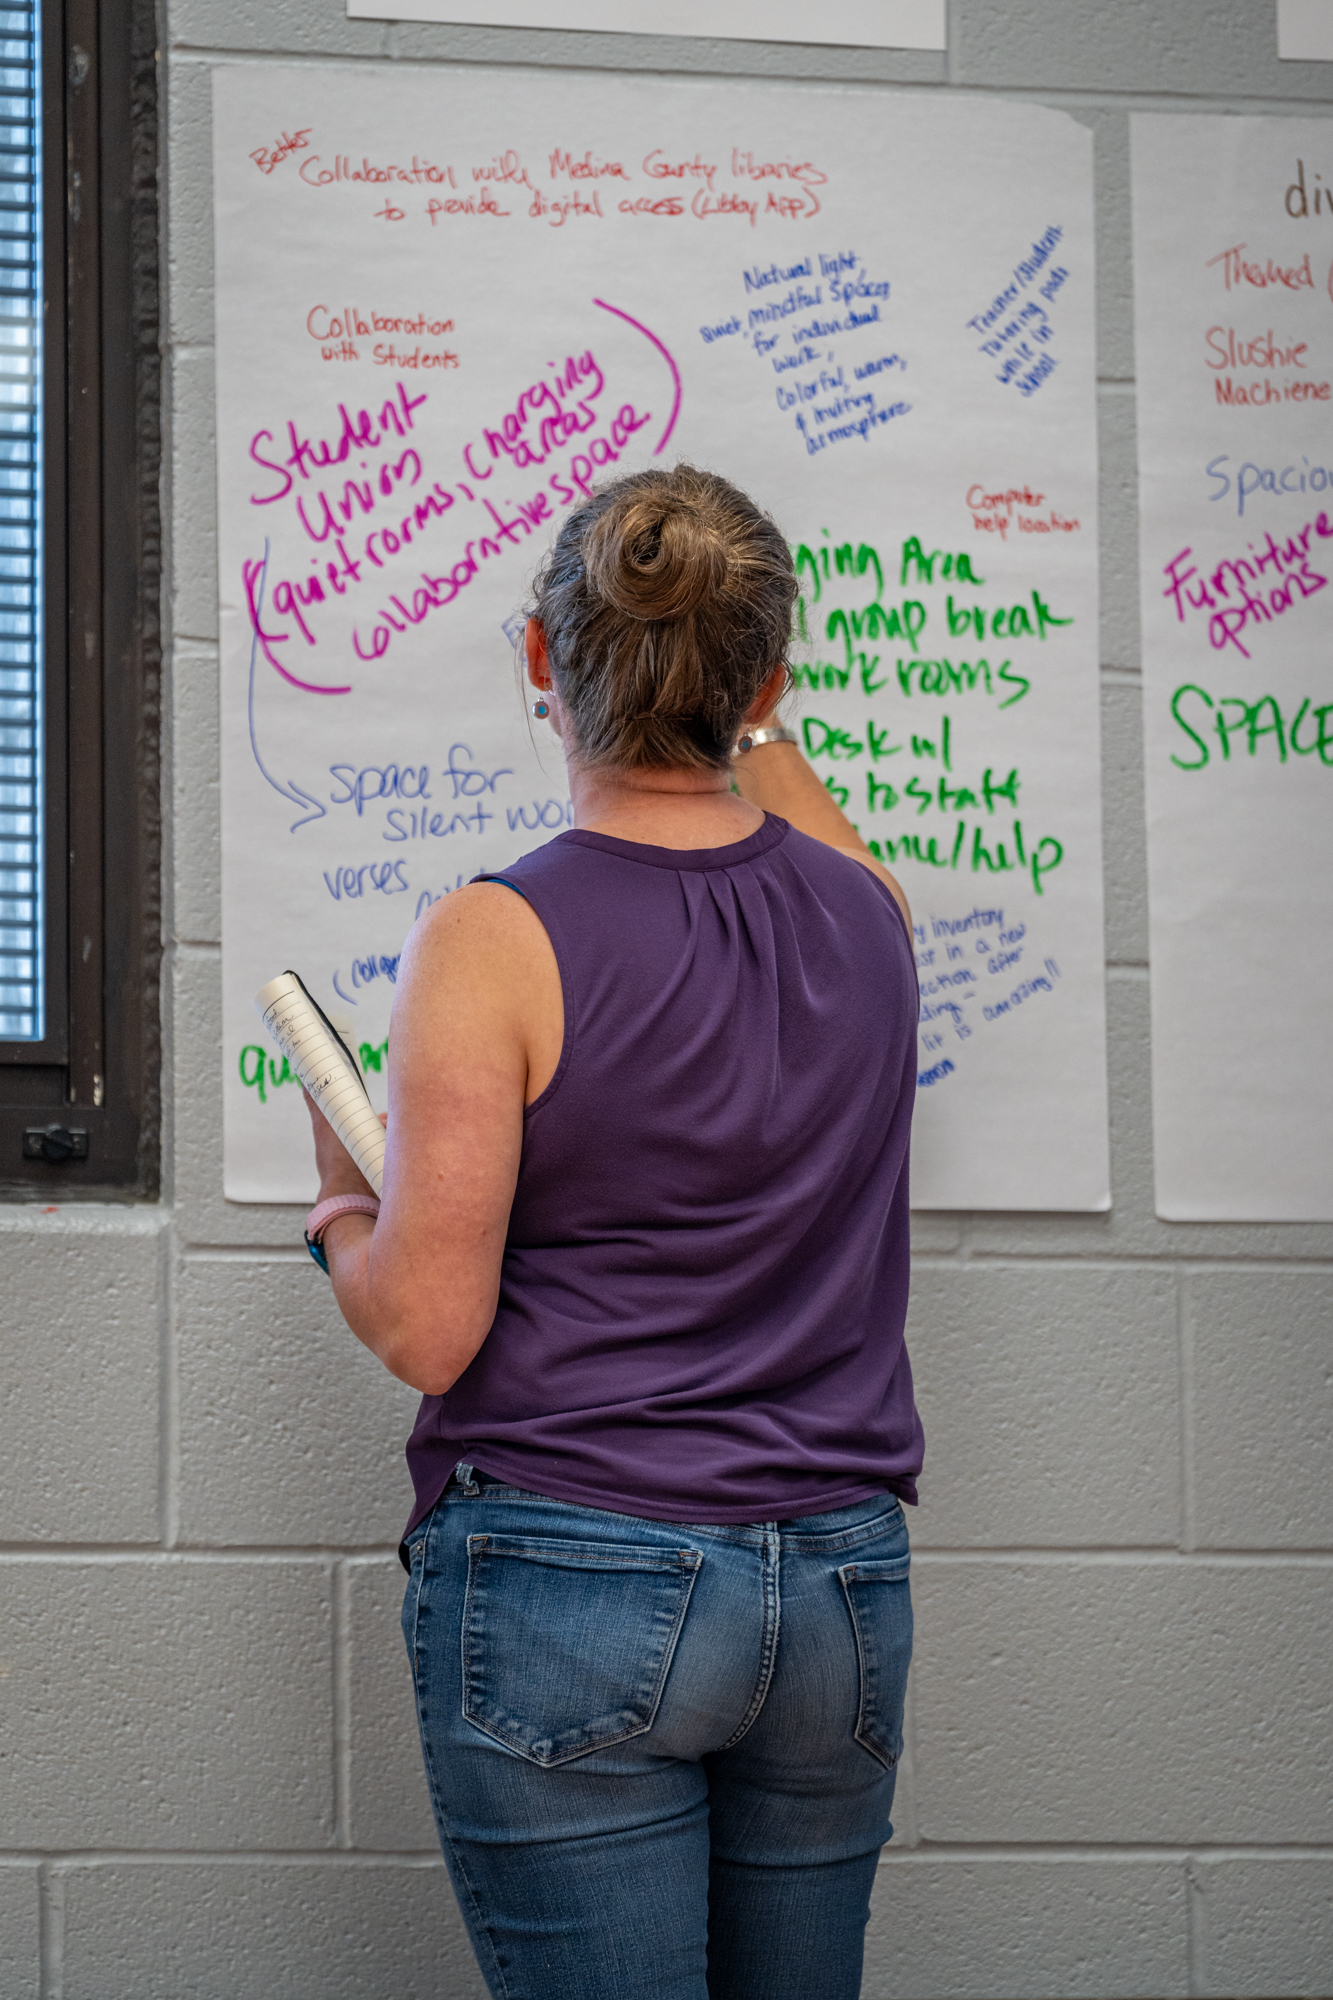 Better
Collaboration with Medina County libraries
to provide digital access (Libby App)
Collaboration
with Students
Student
Union
(quiet rooms, charging
areas
collaborntive space
Natural light,
Quiet, mindful spaces
for individual
work,
Colorful, warm,
& inviting
atmosphere
Teacher/Student
tutoring pods
while in
school
Computer
help location
ging Area
group break
work rooms
Desk w/
to staff
/help
space for
silent wor
verses
y inventory
st in a new
ection after
ding -
lit is amazing!!
Qui
di
Themed
Slushie
Machiene
Spacio
Furniture
options
SPACE